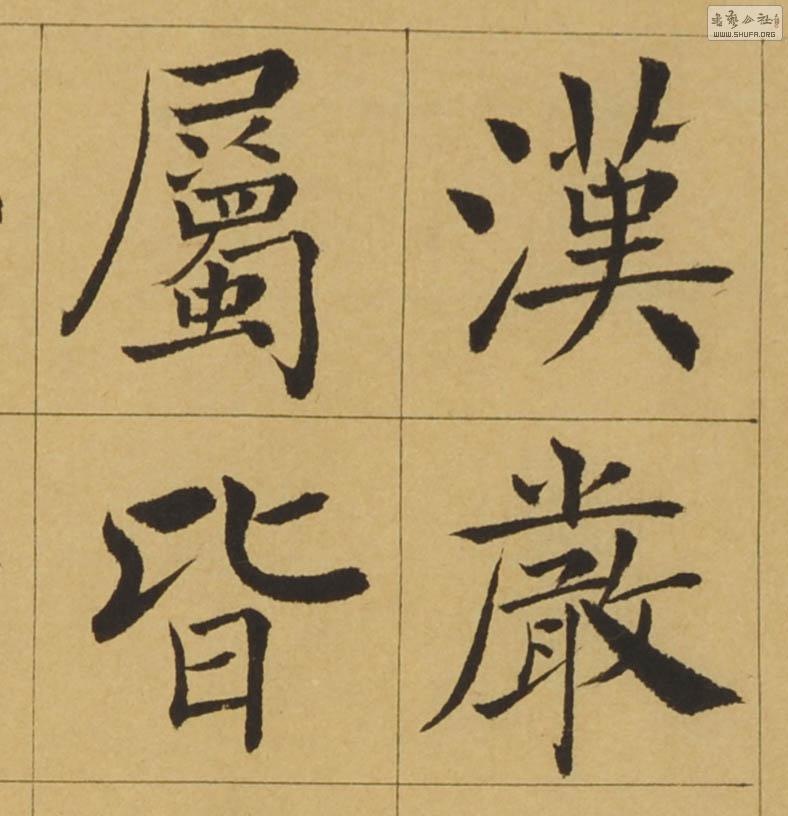 漢嚴
屬皆
書藝公社
WWW.SHUFA.ORG